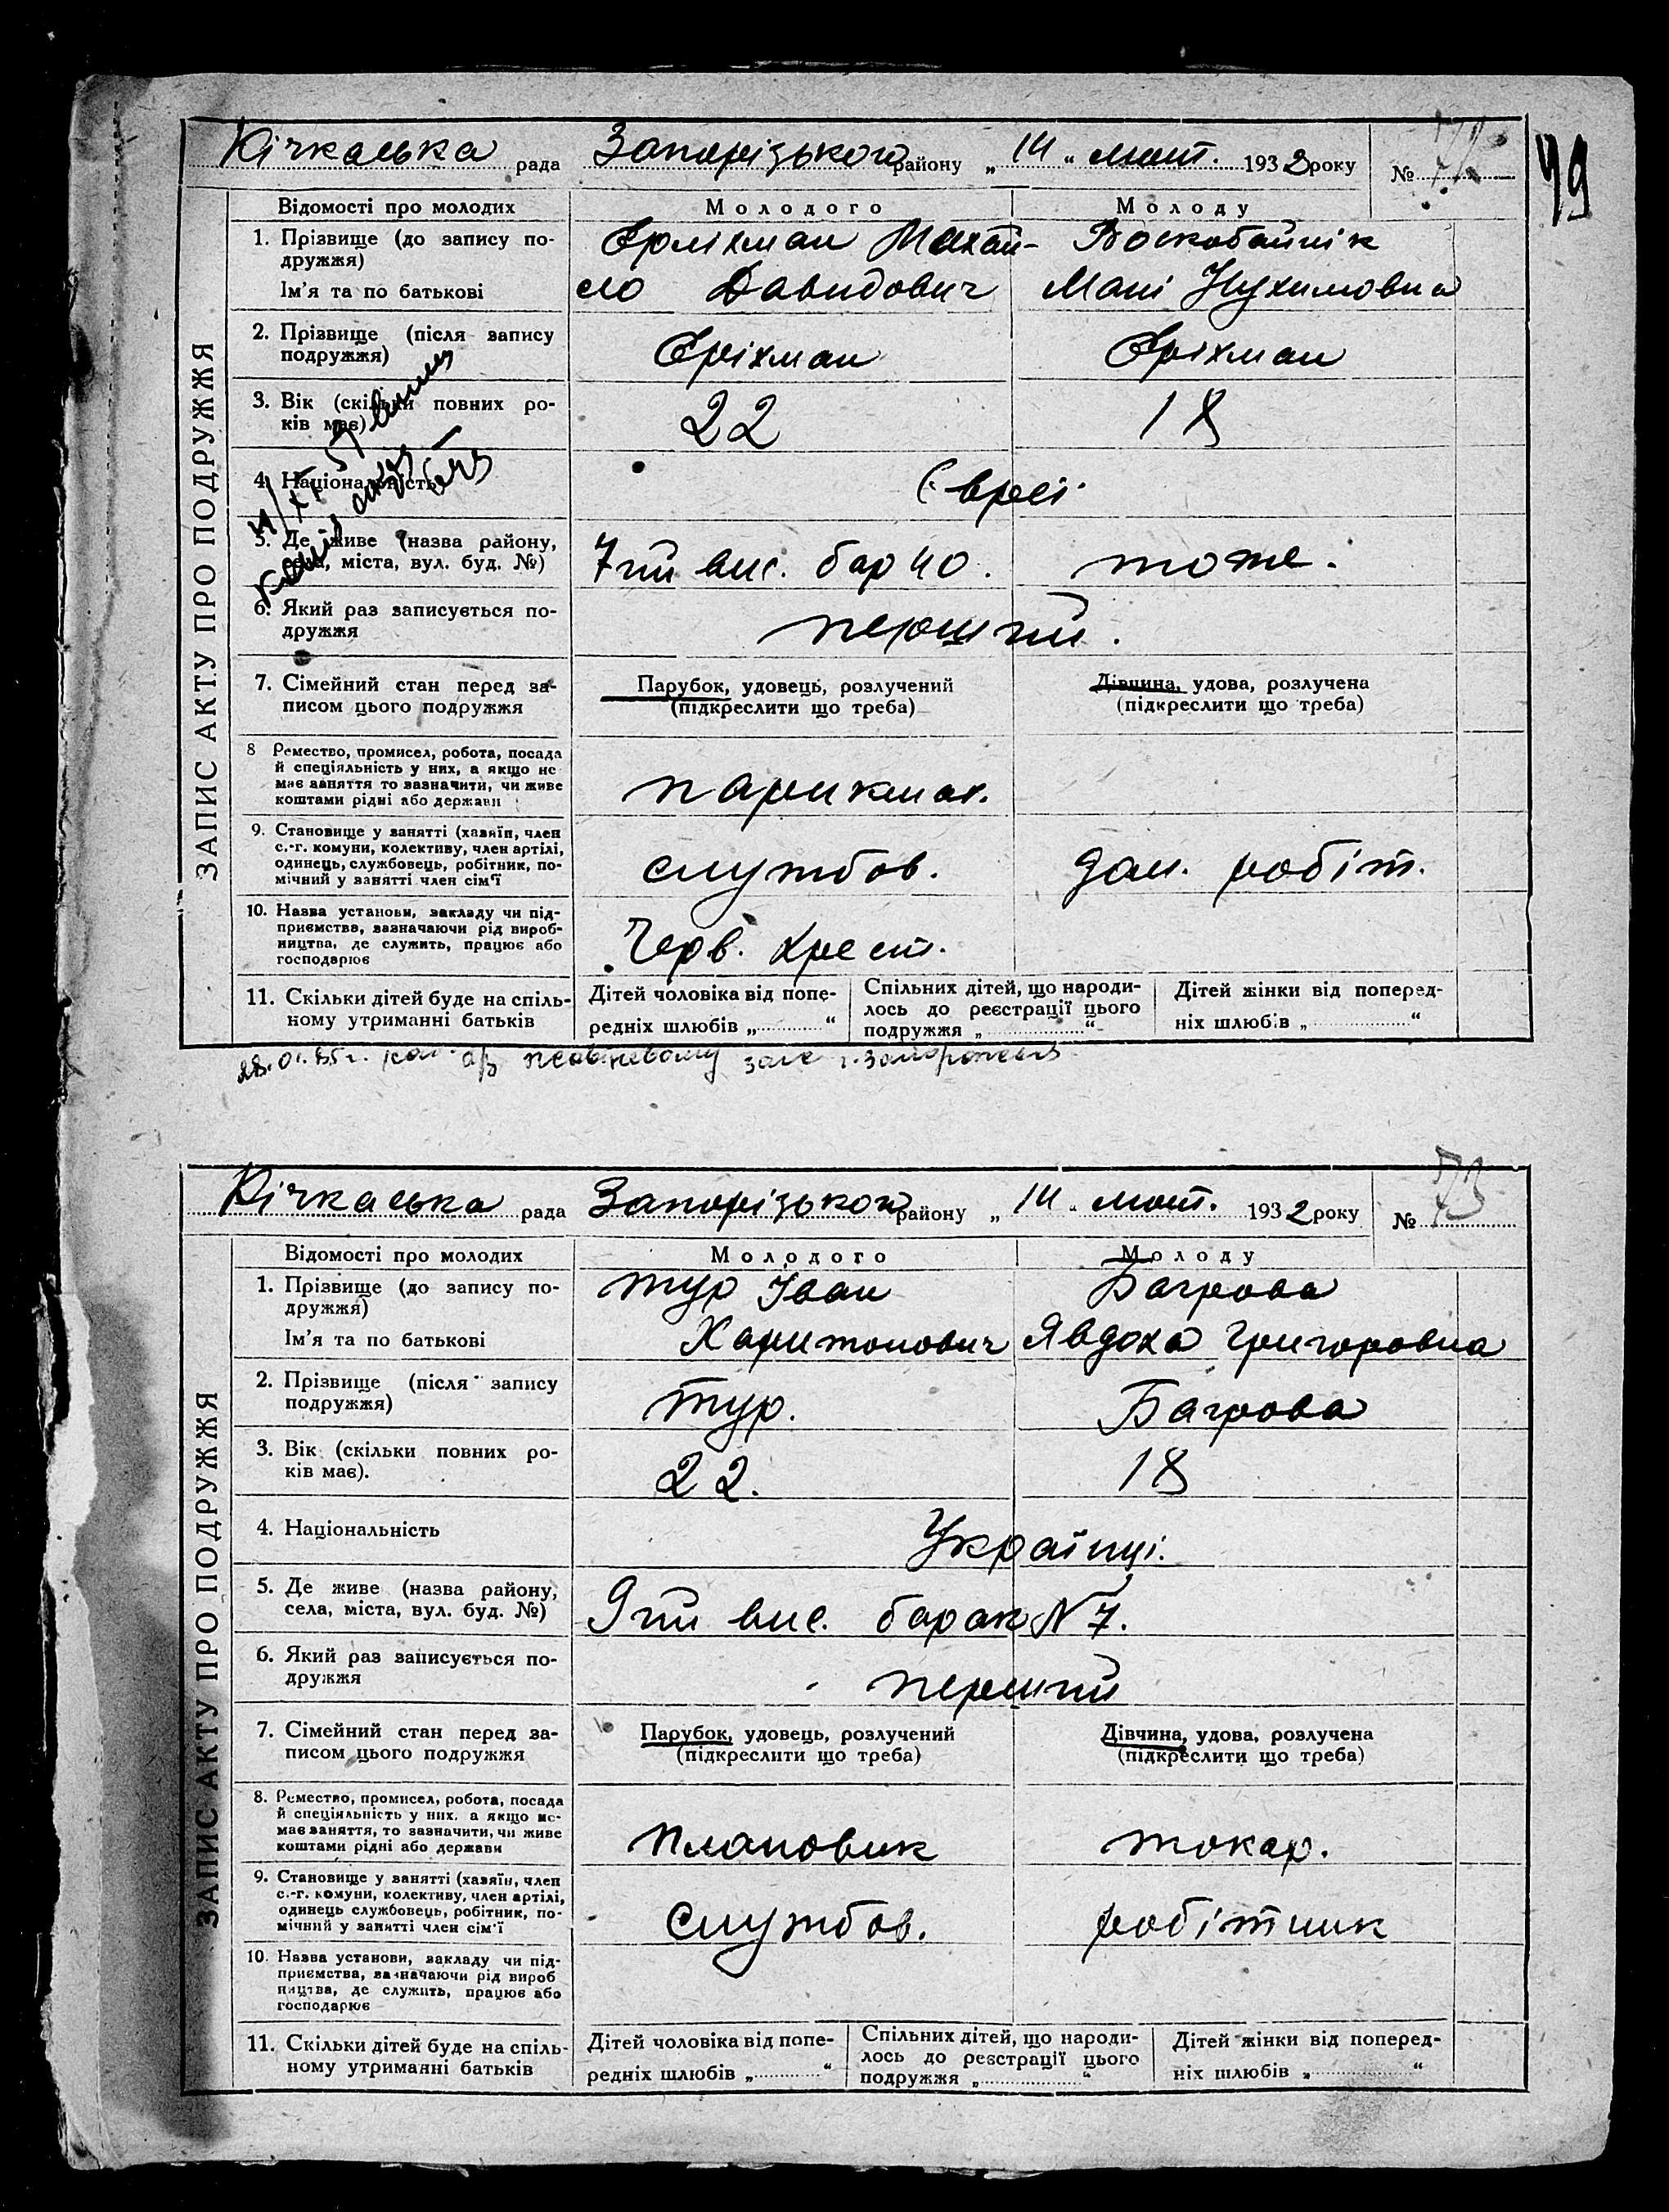 Кічкаська рада Запорізького району „ 14 „ лют. 1932 року №
79
Відомості про молодих Молодого Молоду
ЗАПИС АКТУ ПРО ПОДРУЖЖЯ
1. Прізвище (до запису по- Ерліхман Михай- Воскобайнік
дружжя)
Ім'я та по батькові ло Давидович Мані Нухимовна
2. Прізвище (після запису
подружжя) Еріхман Еріхман
3. Вік (скільки повних ро-
ків має) 22 18
4. Національність Євреї
5. Де живе (назва району,
села, міста, вул. буд. №) 7ий вис. бар 40. тоже.
6. Який раз записується по-
дружжя перший.
7. Сімейний стан перед за- Парубок, удовець, розлучений Дівчина, удова, розлучена
писом цього подружжя (підкреслити що треба) (підкреслити що треба)
8 Ремество, промисел, робота, посада
й спеціяльність у них, а якщо не
має заняття то зазначити, чи живе парикмах.
коштами рідні або держави
9. Становище у занятті (хазяїн, член
с.-г. комуни, колективу, член артілі,
одинець, службовець, робітник, по- службов. дом. робіт.
мічний у занятті член сім'ї
10. Назва установи, закладу чи під-
приємства, зазначаючи рід вироб-
ництва, де служить, працює або Черв. Хрест.
господарює
11. Скільки дітей буде на спіль- Дітей чоловіка від попе- Спільних дітей, що народи- Дітей жінки від поперед-
ному утриманні батьків редніх шлюбів „ “ лось до реєстрації цього ніх шлюбів „ “
подружжя „ “
28.01.55г. загс г. Запорожья
Кічкаська рада Запорізького району „ 14 „ лют. 1932 року № 73
Відомості про молодих Молодого Молоду
ЗАПИС АКТУ ПРО ПОДРУЖЖЯ
1. Прізвище (до запису по- Тур Іван Багрова
дружжя)
Ім'я та по батькові Харитонович Явдоха Григоровна
2. Прізвище (після запису
подружжя) Тур. Багрова
3. Вік (скільки повних ро-
ків має). 22. 18
4. Національність Українці.
5. Де живе (назва району,
села, міста, вул. буд. №) 9ий вис. барак N 7.
6. Який раз записується по-
дружжя перший
7. Сімейний стан перед за- Парубок, удовець, розлучений Дівчина, удова, розлучена
писом цього подружжя (підкреслити що треба) (підкреслити що треба)
8. Ремество, промисел, робота, посада
й спеціяльність у них, а якщо не-
має заняття, то зазначити, чи живе плановик токар.
коштами рідні або держави
9. Становище у занятті (хазяїн, член
с.-г. комуни, колективу, член артілі,
одинець службовець, робітник, по- службов. робітник
мічний у занятті член сім'ї
10. Назва установи, закладу чи під-
приємства, зазначаючи рід вироб
ництва, де служить, працює або
господарює
11. Скільки дітей буде на спіль- Дітей чоловіка від попе- Спільних дітей, що народи- Дітей жінки від поперед-
ному утриманні батьків редніх шлюбів „ “ лось до реєстрації цього ніх шлюбів „ “
подружжя „ “